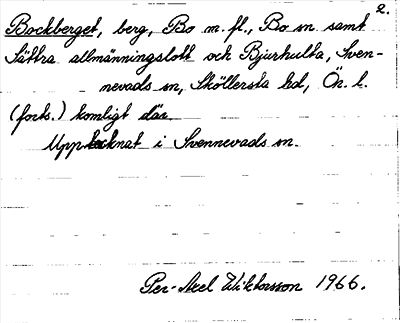 2.
Bockberget, berg, Bo m. fl., Bo sn samt
Sättra allmänningslott och Bjurhulta, Sven-
nevads sn, Sköllersta hd, Ön. l.
(forts.) komligt där.
Upptecknat i Svennevads sn.
Per-Axel Wiktorsson 1966.